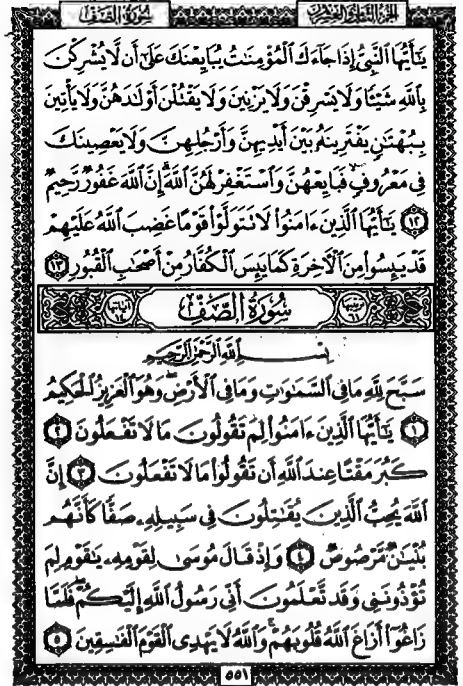 سورة الصف
الجزء الثامن والعشرون
يَٰٓأَيُّهَا ٱلنَّبِيُّ إِذَا جَآءَكَ ٱلْمُؤْمِنَٰتُ يُبَايِعْنَكَ عَلَىٰٓ أَن لَّا يُشْرِكْنَ
بِٱللَّهِ شَيْـًٔا وَلَا يَسْرِقْنَ وَلَا يَزْنِينَ وَلَا يَقْتُلْنَ أَوْلَٰدَهُنَّ وَلَا يَأْتِينَ
بِبُهْتَٰنٍ يَفْتَرِينَهُۥ بَيْنَ أَيْدِيهِنَّ وَأَرْجُلِهِنَّ وَلَا يَعْصِينَكَ
فِى مَعْرُوفٍ فَبَايِعْهُنَّ وَٱسْتَغْفِرْ لَهُنَّ ٱللَّهَ إِنَّ ٱللَّهَ غَفُورٌ رَّحِيمٌ
١٢ يَٰٓأَيُّهَا ٱلَّذِينَ ءَامَنُوا۟ لَا تَتَوَلَّوْا۟ قَوْمًا غَضِبَ ٱللَّهُ عَلَيْهِمْ
قَدْ يَئِسُوا۟ مِنَ ٱلْءَاخِرَةِ كَمَا يَئِسَ ٱلْكُفَّارُ مِنْ أَصْحَٰبِ ٱلْقُبُورِ ١٣
سُورَةُ الصَّفِّ
بِسْمِ ٱللَّهِ ٱلرَّحْمَٰنِ ٱلرَّحِيمِ
سَبَّحَ لِلَّهِ مَا فِى ٱلسَّمَٰوَٰتِ وَمَا فِى ٱلْأَرْضِ وَهُوَ ٱلْعَزِيزُ ٱلْحَكِيمُ
١ يَٰٓأَيُّهَا ٱلَّذِينَ ءَامَنُوا۟ لِمَ تَقُولُونَ مَا لَا تَفْعَلُونَ ٢
كَبُرَ مَقْتًا عِندَ ٱللَّهِ أَن تَقُولُوا۟ مَا لَا تَفْعَلُونَ ٣ إِنَّ
ٱللَّهَ يُحِبُّ ٱلَّذِينَ يُقَٰتِلُونَ فِى سَبِيلِهِۦ صَفًّا كَأَنَّهُم
بُنْيَٰنٌ مَّرْصُوصٌ ٤ وَإِذْ قَالَ مُوسَىٰ لِقَوْمِهِۦ يَٰقَوْمِ لِمَ
تُؤْذُونَنِى وَقَد تَّعْلَمُونَ أَنِّى رَسُولُ ٱللَّهِ إِلَيْكُمْ فَلَمَّا
زَاغُوٓا۟ أَزَاغَ ٱللَّهُ قُلُوبَهُمْ وَٱللَّهُ لَا يَهْدِى ٱلْقَوْمَ ٱلْفَٰسِقِينَ ٥
٥٥١